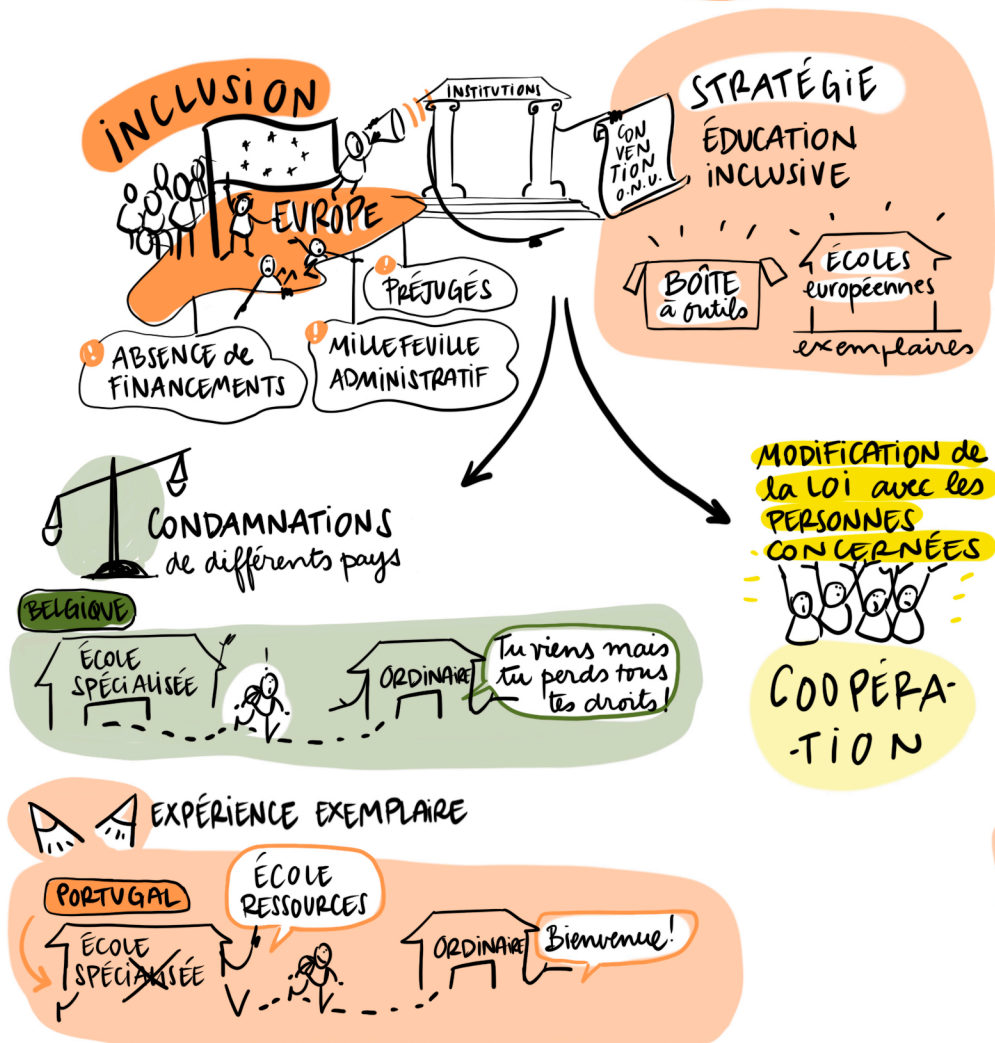 INCLUSION
EUROPE
INSTITUTIONS
CON
VEN
TION
O.N.U.
STRATÉGIE
ÉDUCATION
INCLUSIVE
BOÎTE
à outils
ÉCOLES
européennes
exemplaires
! PRÉJUGÉS
! ABSENCE de
FINANCEMENTS
! MILLEFEUILLE
ADMINISTRATIF
CONDAMNATIONS
de différents pays
BELGIQUE
ÉCOLE
SPÉCIALISÉE
ORDINAIRE
Tu viens mais
tu perds tous
tes droits!
MODIFICATION de
la LOI avec les
PERSONNES
CONCERNÉES
COOPÉRA-
-TION
EXPÉRIENCE EXEMPLAIRE
PORTUGAL
ÉCOLE
SPÉCIALISÉE
ÉCOLE
RESSOURCES
ORDINAIRE
Bienvenue!